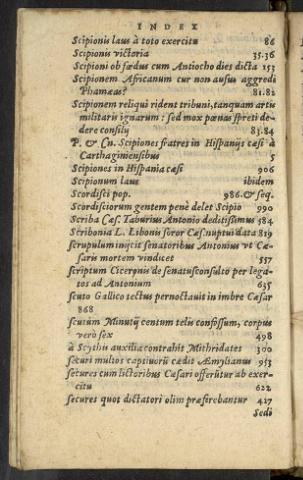 INDEX
Scipionis laus à toto exercitu 86
Scipionis victoria 35.36
Scipioni ob fœdus cum Antiocho dies dicta 153
Scipionem Africanum cur non ausus aggredi
Phamæas? 81.82
Scipionem reliqui rident tribuni, tanquam artis
militaris ignarum: sed mox pœnas spreti de-
dere consilij 83.84
P. & Cn. Scipiones fratres in Hispanijs cæsi à
Carthaginensibus 5
Scipiones in Hispania cæsi 906
Scipionum laus ibidem
Scordisci pop. 986. & seq.
Scordisciorum gentem penè delet Scipio 990
Scriba Cæs. Taburius Antonio deditissimus 584
Scribonia L. Libonis soror Cæs. nuptui data 819
scrupulum inijcit senatoribus Antonius vt Cæ-
saris mortem vindicet 557
scriptum Ciceronis de senatusconsulto per lega-
tos ad Antonium 635
scuto Gallico tectus pernoctauit in imbre Cæsar
868
scutum Minutij centum telis confossum, corpus
verò sex 498
à Scythis auxilia contrahit Mithridates 300
securi multos captiuorū cædit Æmylianus 953
secures cum lictoribus Cæsari offerūtur ab exer-
citu 622
secures quot dictatori olim præferebantur 427
Sedi